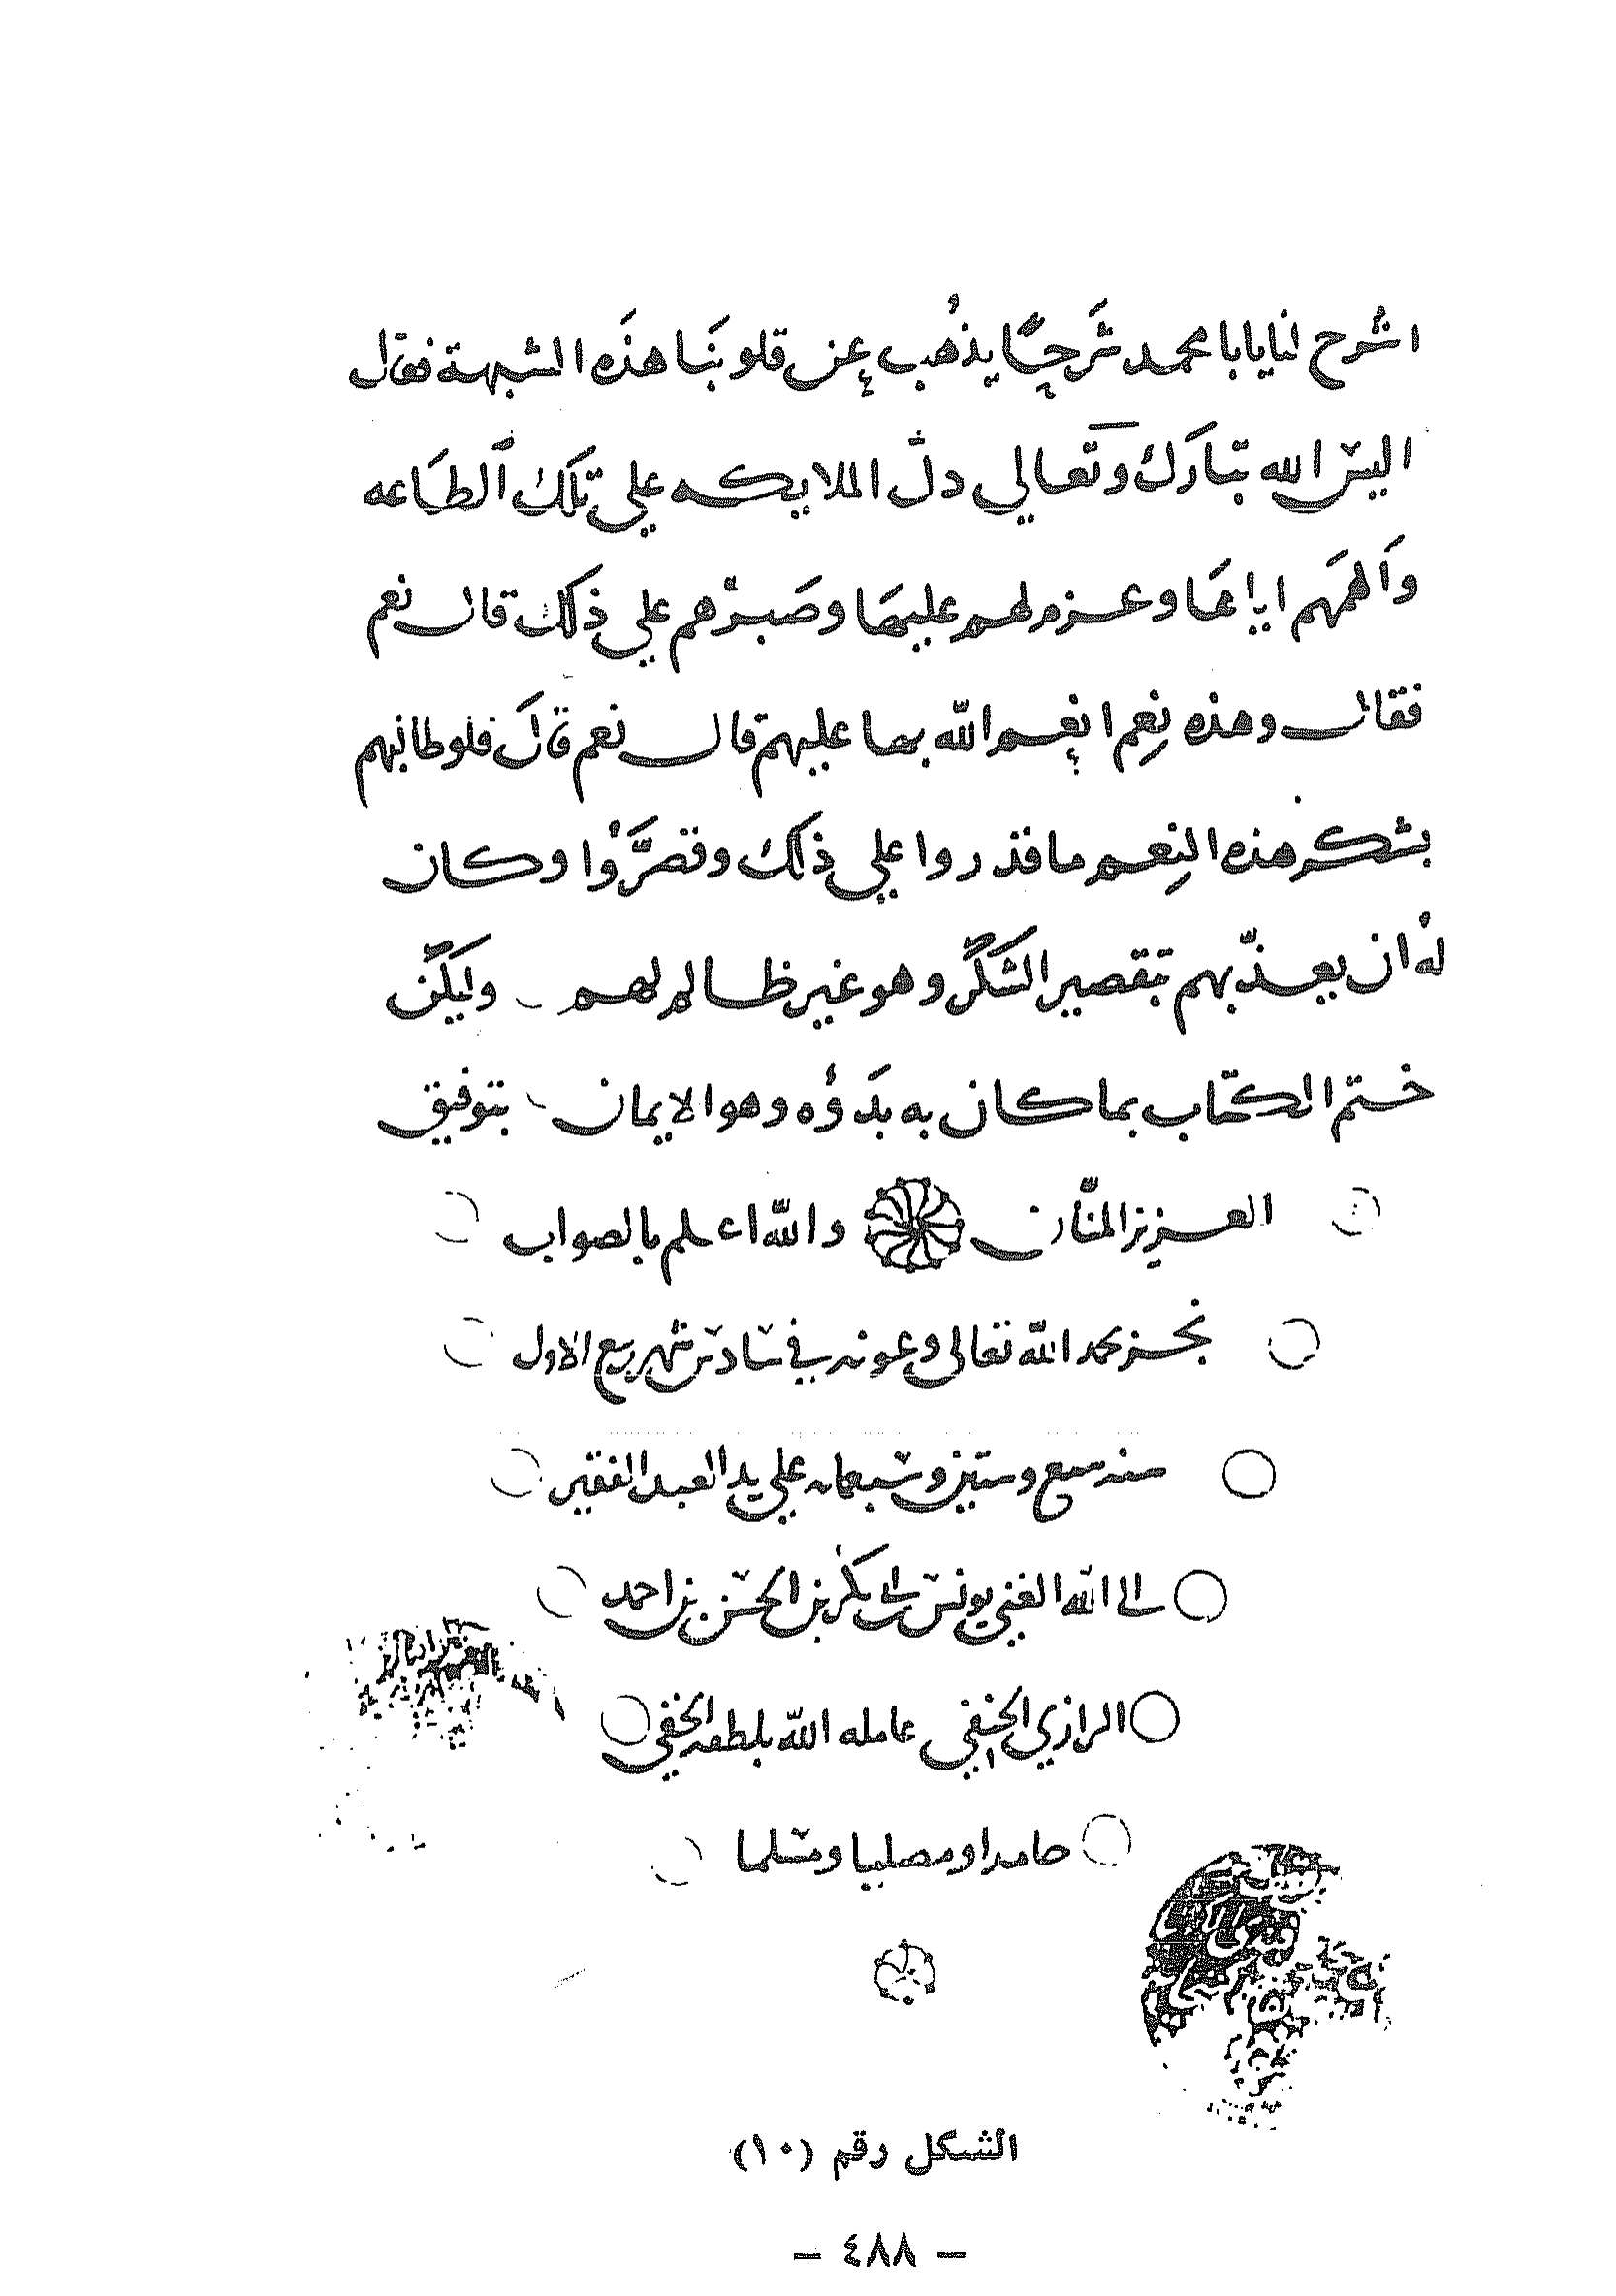 اشرح لنا يابا محمد شَرحًا يذهُب عن قلوبنَا هذَه الشبهة فقال
اليس الله تبارَك وتعالي دلّ الملايكه علي تلكَ الطَاعه
وَالهمَهم اياهَا وعزم لهم عليهَا وصَبرهم علي ذَلك قال نعم
فقال وهذه نِعم انعم الله بها عليهم قال نعم قالَ فلو طالبهم
بشكر هذه النِعم ما قدروا علي ذَلك وقصَّرُوا وكان
لهُ ان يعذّبهم بتقصير الشكرِ وهو غير ظالم لهم وليكن
ختم الكتاب بما كان به بدَؤُه وهو الايمان بتوفيق
العزيز المنّان والله اعلم بالصواب
نجز بحمد الله تعالى وعونه في سادس شهر ربيع الاول
سنه سبع وستين وسبعمايه علي يد العبد الفقير
الى الله الغني يونس بن ابى بكر بن الحسن بن احمد
الرازي الحنفي عامله الله بلطفه الخفي
حامدا ومصليا ومسلما
الشكل رقم (١٠)
– ٤٨٨ –